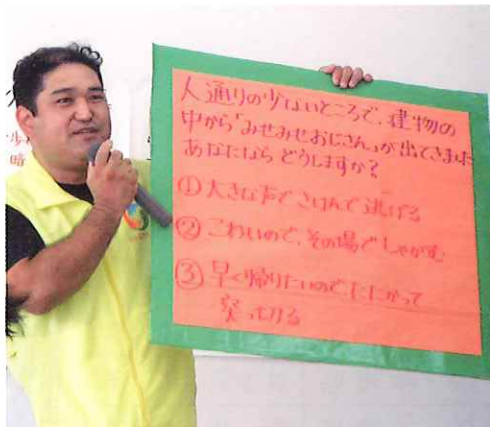 人通りの少ないところで、建物の
中から「みせみせおじさん」が出てきました
あなたなら どうしますか?
① 大きな声でさけんで逃げる
② こわいので、その場でしゃがむ
③ 早く帰りたいのでたたかって
突っ切る